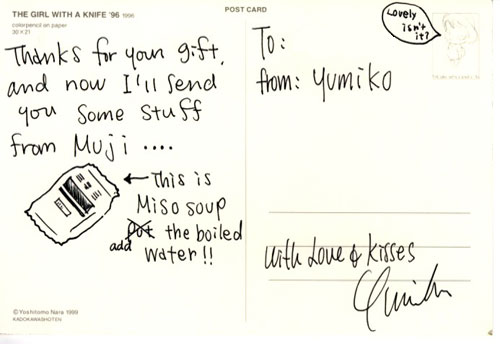 THE GIRL WITH A KNIFE '96 1996
colorpencil on paper
30 × 21
Thanks for your gift,
and now I'll send
you some stuff
from Muji ....
← This is
Miso soup
put the boiled
add water!!
©Yoshitomo Nara 1999
KADOKAWASHOTEN
POST CARD
Lovely
isn't
it?
To:
from: Yumiko
with Love & kisses
Yumiko